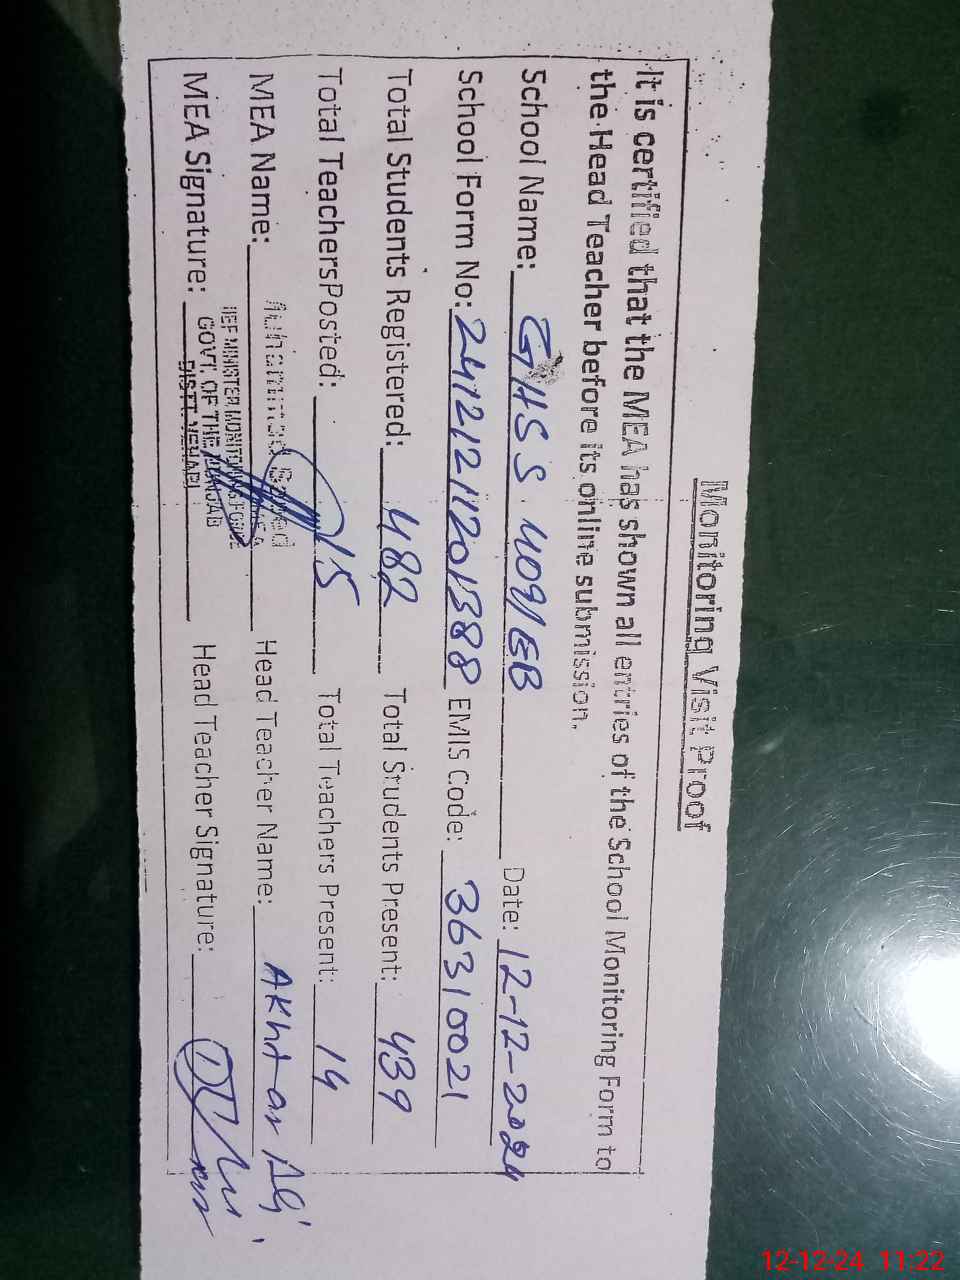 Monitoring Visit Proof
It is certified that the MEA has shown all entries of the School Monitoring Form to
the Head Teacher before its online submission.
School Name: GHSS 409/EB Date: 12-12-2024
School Form No: 24121211201388 EMIS Code: 36310021
Total Students Registered: 482 Total Students Present: 439
Total TeachersPosted: 15 Total Teachers Present: 14
MEA Name: Muhammad Head Teacher Name: Akhtar Ali
IEF MINISTER MONITORING FORCE
MEA Signature: GOVT. OF THE PUNJAB Head Teacher Signature:
DISTT. VEHARI
12-12-24 11:22